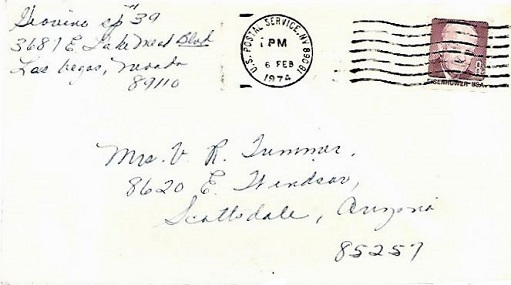 sp 39
3687 E. Lake Mead Blvd
Las Vegas, Nevada
89110
U.S. POSTAL SERVICE, NV 890
PM
6 FEB
1974
EISENHOWER USA
Mrs. V. R. Trimmar,
8620 E. Windsor,
Scottsdale, Arizona
85257